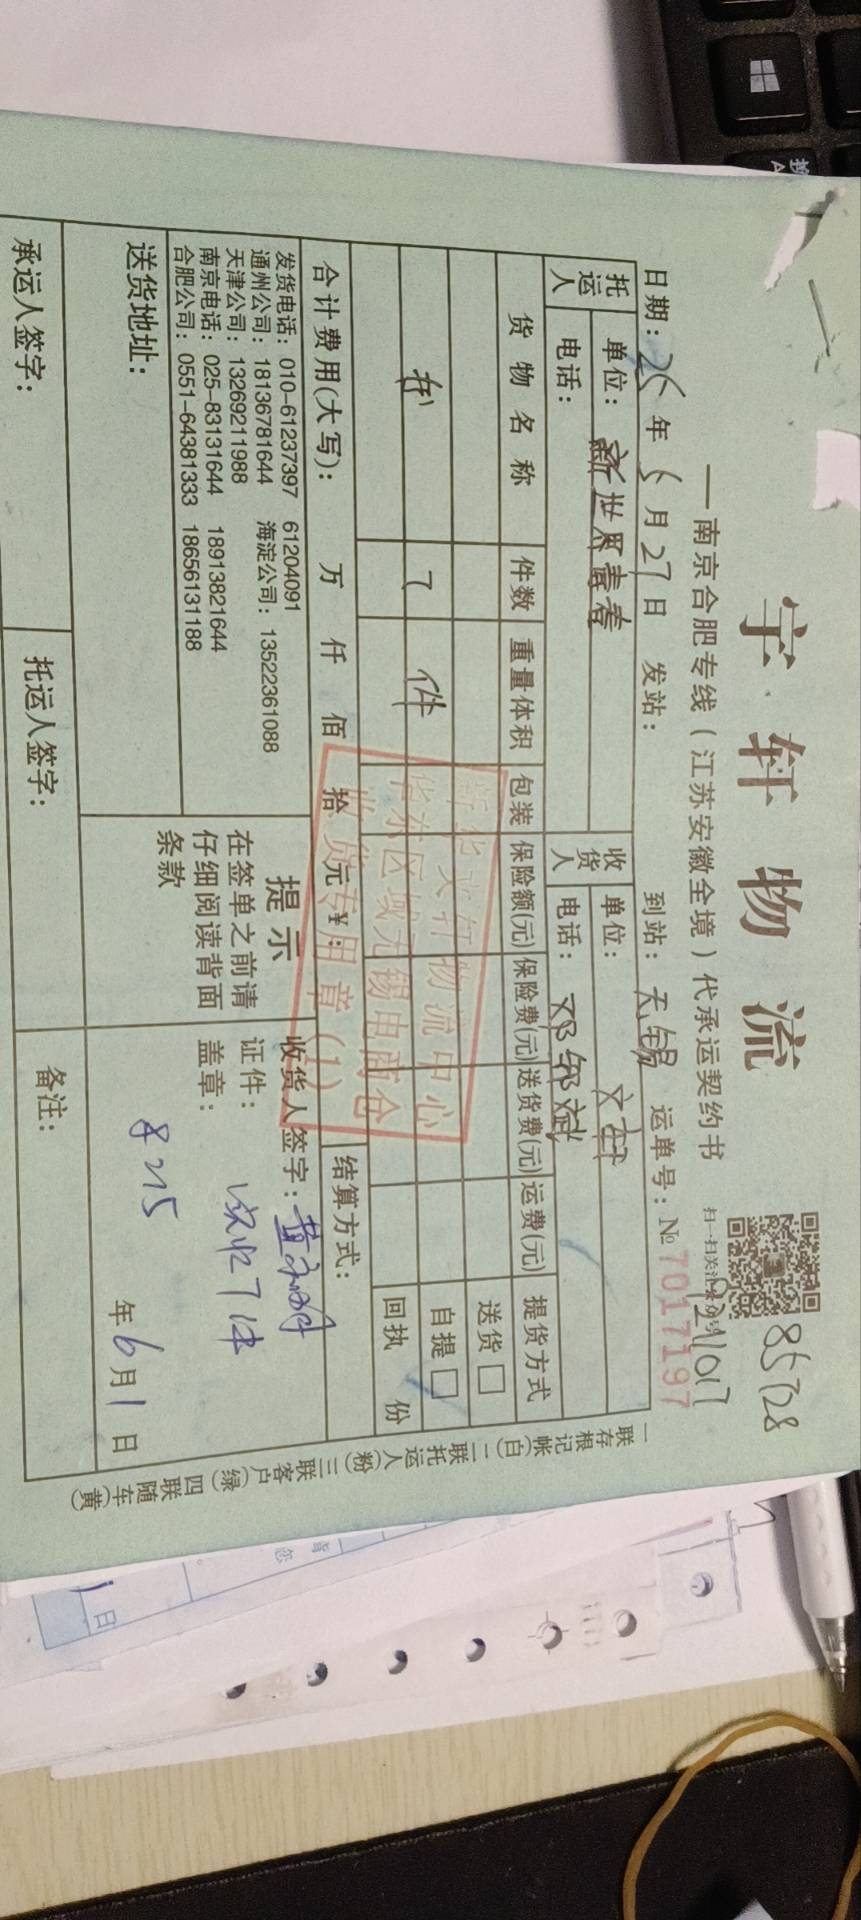 宇轩物流
—南京合肥专线（江苏安徽全境）代承运契约书
扫一扫关注
85728
日期：25年5月27日 发站： 到站：无锡 运单号：№7017197
托运人 单位：新世界青春 收货人 单位：文轩
电话： 电话：邓郭斌
货物名称 件数 重量体积 包装 保险额(元) 保险费(元) 送货费(元) 运费(元) 提货方式
送货□
自提□
7 件
回执 份
合计费用(大写)： 万 仟 佰 拾 元 ¥： 结算方式：
新华文轩物流中心
华东区域无锡电商仓
收货专用章(1)
发货电话：010-61237397 61204091
通州公司：18136781644 海淀公司：13522361088
天津公司：13269211988
南京电话：025-83131644 18913821644
合肥公司：0551-64381333 18656131188
提示
在签单之前请
仔细阅读背面
条款
收货人签字：
证件： 实收7件
盖章：
8215
年6月1日
送货地址：
承运人签字： 托运人签字： 备注：
一联存根记帐(白) 二联托运人(粉) 三联客户(绿) 四联随车(黄)
日